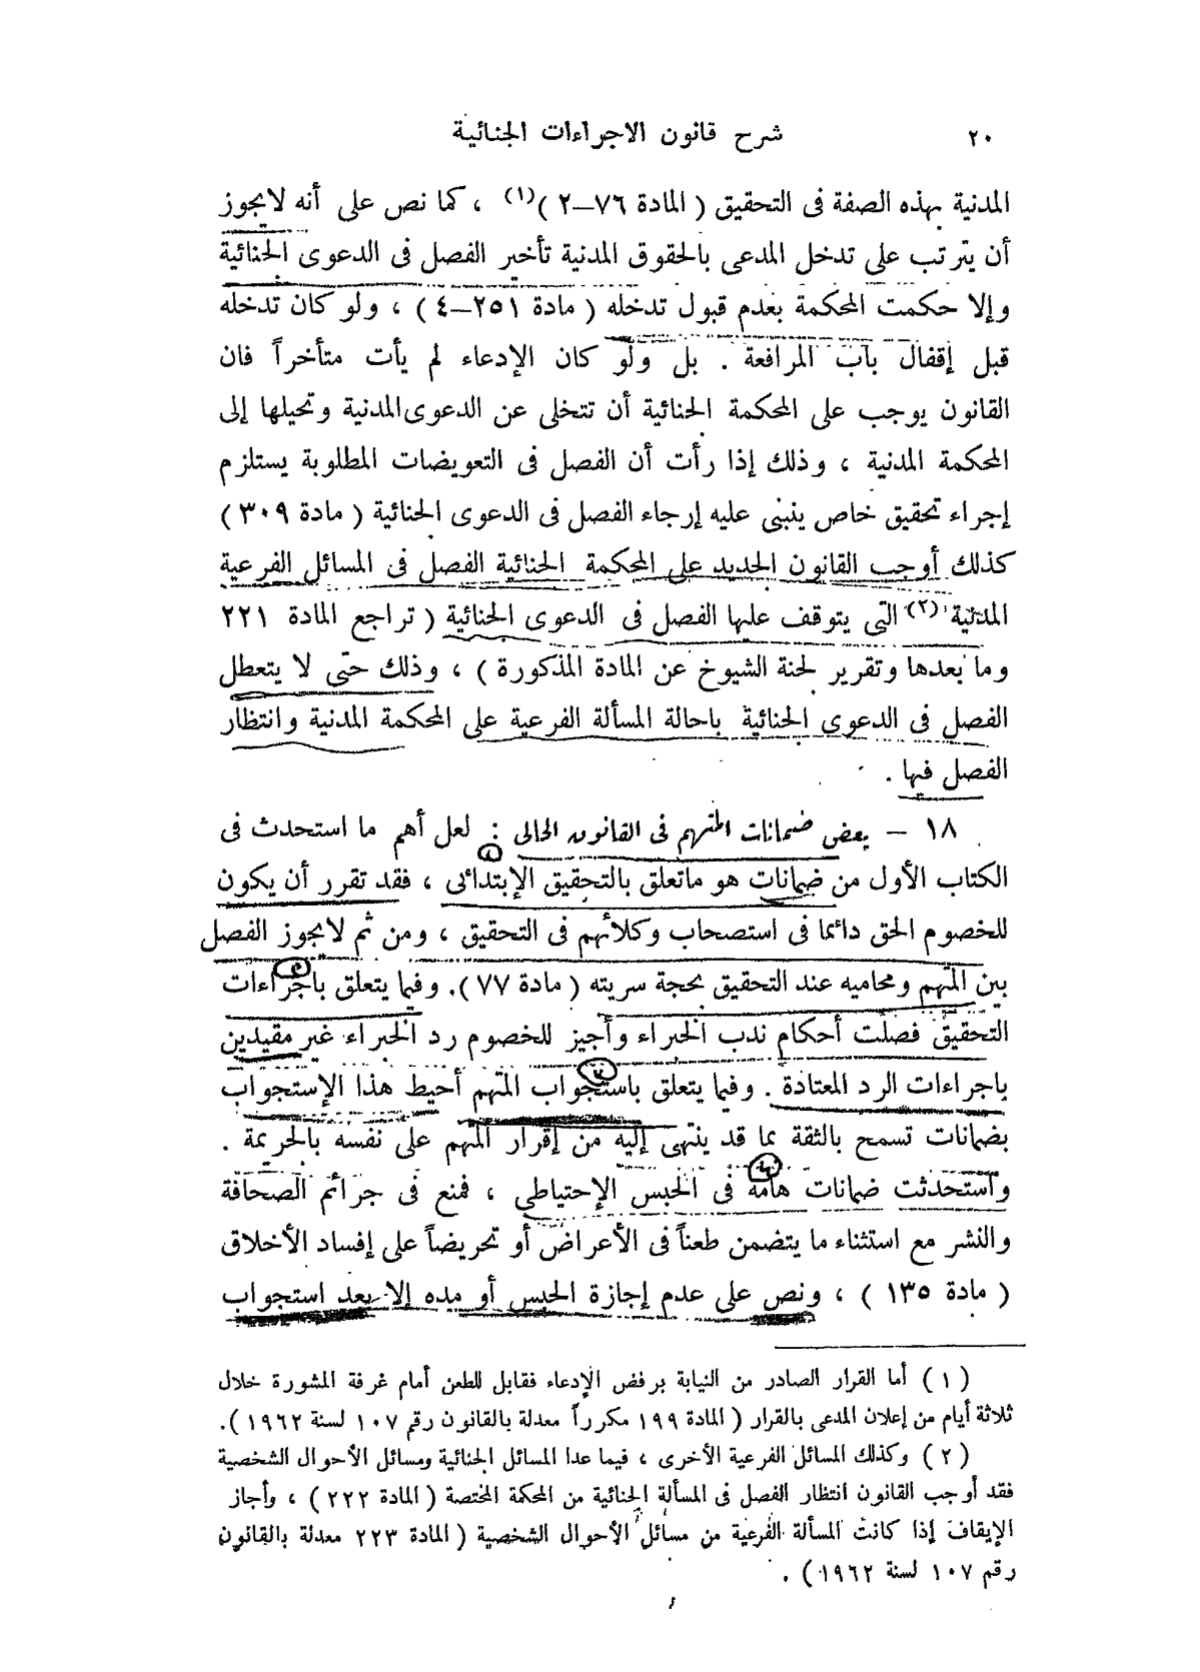 ٢٠
شرح قانون الاجراءات الجنائية
المدنية بهذه الصفة فى التحقيق ( المادة ٧٦–٢ )(١) ، كما نص على أنه لايجوز
أن يترتب على تدخل المدعى بالحقوق المدنية تأخير الفصل فى الدعوى الجنائية
وإلا حكمت المحكمة بعدم قبول تدخله ( مادة ٢٥١–٤ ) ، ولو كان تدخله
قبل إقفال باب المرافعة . بل ولو كان الإدعاء لم يأت متأخراً فان
القانون يوجب على المحكمة الجنائية أن تتخلى عن الدعوى المدنية وتحيلها إلى
المحكمة المدنية ، وذلك إذا رأت أن الفصل فى التعويضات المطلوبة يستلزم
إجراء تحقيق خاص ينبنى عليه إرجاء الفصل فى الدعوى الجنائية ( مادة ٣٠٩ )
كذلك أوجب القانون الجديد على المحكمة الجنائية الفصل فى المسائل الفرعية
المدنية (٢) التى يتوقف عليها الفصل فى الدعوى الجنائية ( تراجع المادة ٢٢١
وما بعدها وتقرير لجنة الشيوخ عن المادة المذكورة ) ، وذلك حتى لا يتعطل
الفصل فى الدعوى الجنائية باحالة المسألة الفرعية على المحكمة المدنية وانتظار
الفصل فيها .
١٨ – بعض ضمانات المتهم فى القانون الحالى : لعل أهم ما استحدث فى
الكتاب الأول من ضمانات هو ماتعلق بالتحقيق الإبتدائى ، فقد تقرر أن يكون
للخصوم الحق دائما فى استصحاب وكلائهم فى التحقيق ، ومن ثم لايجوز الفصل
بين المتهم ومحاميه عند التحقيق بحجة سريته ( مادة ٧٧ ). وفيما يتعلق باجراءات
التحقيق فصلت أحكام ندب الخبراء وأجيز للخصوم رد الخبراء غير مقيدين
باجراءات الرد المعتادة . وفيما يتعلق باستجواب المتهم أحيط هذا الإستجواب
بضمانات تسمح بالثقة بما قد ينتهى إليه من إقرار المتهم على نفسه بالجريمة .
واستحدثت ضمانات هامة فى الحبس الإحتياطى ، فمنع فى جرائم الصحافة
والنشر مع استثناء ما يتضمن طعناً فى الأعراض أو تحريضاً على إفساد الأخلاق
( مادة ١٣٥ ) ، ونص على عدم إجازة الحبس أو مده إلا بعد استجواب
( ١ ) أما القرار الصادر من النيابة برفض الإدعاء فقابل للطعن أمام غرفة المشورة خلال
ثلاثة أيام من إعلان المدعى بالقرار ( المادة ١٩٩ مكرراً معدلة بالقانون رقم ١٠٧ لسنة ١٩٦٢ ).
( ٢ ) وكذلك المسائل الفرعية الأخرى ، فيما عدا المسائل الجنائية ومسائل الأحوال الشخصية
فقد أوجب القانون انتظار الفصل فى المسألة الجنائية من المحكمة المختصة ( المادة ٢٢٢ ) ، وأجاز
الإيقاف إذا كانت المسألة الفرعية من مسائل الأحوال الشخصية ( المادة ٢٢٣ معدلة بالقانون
رقم ١٠٧ لسنة ١٩٦٢ ) .